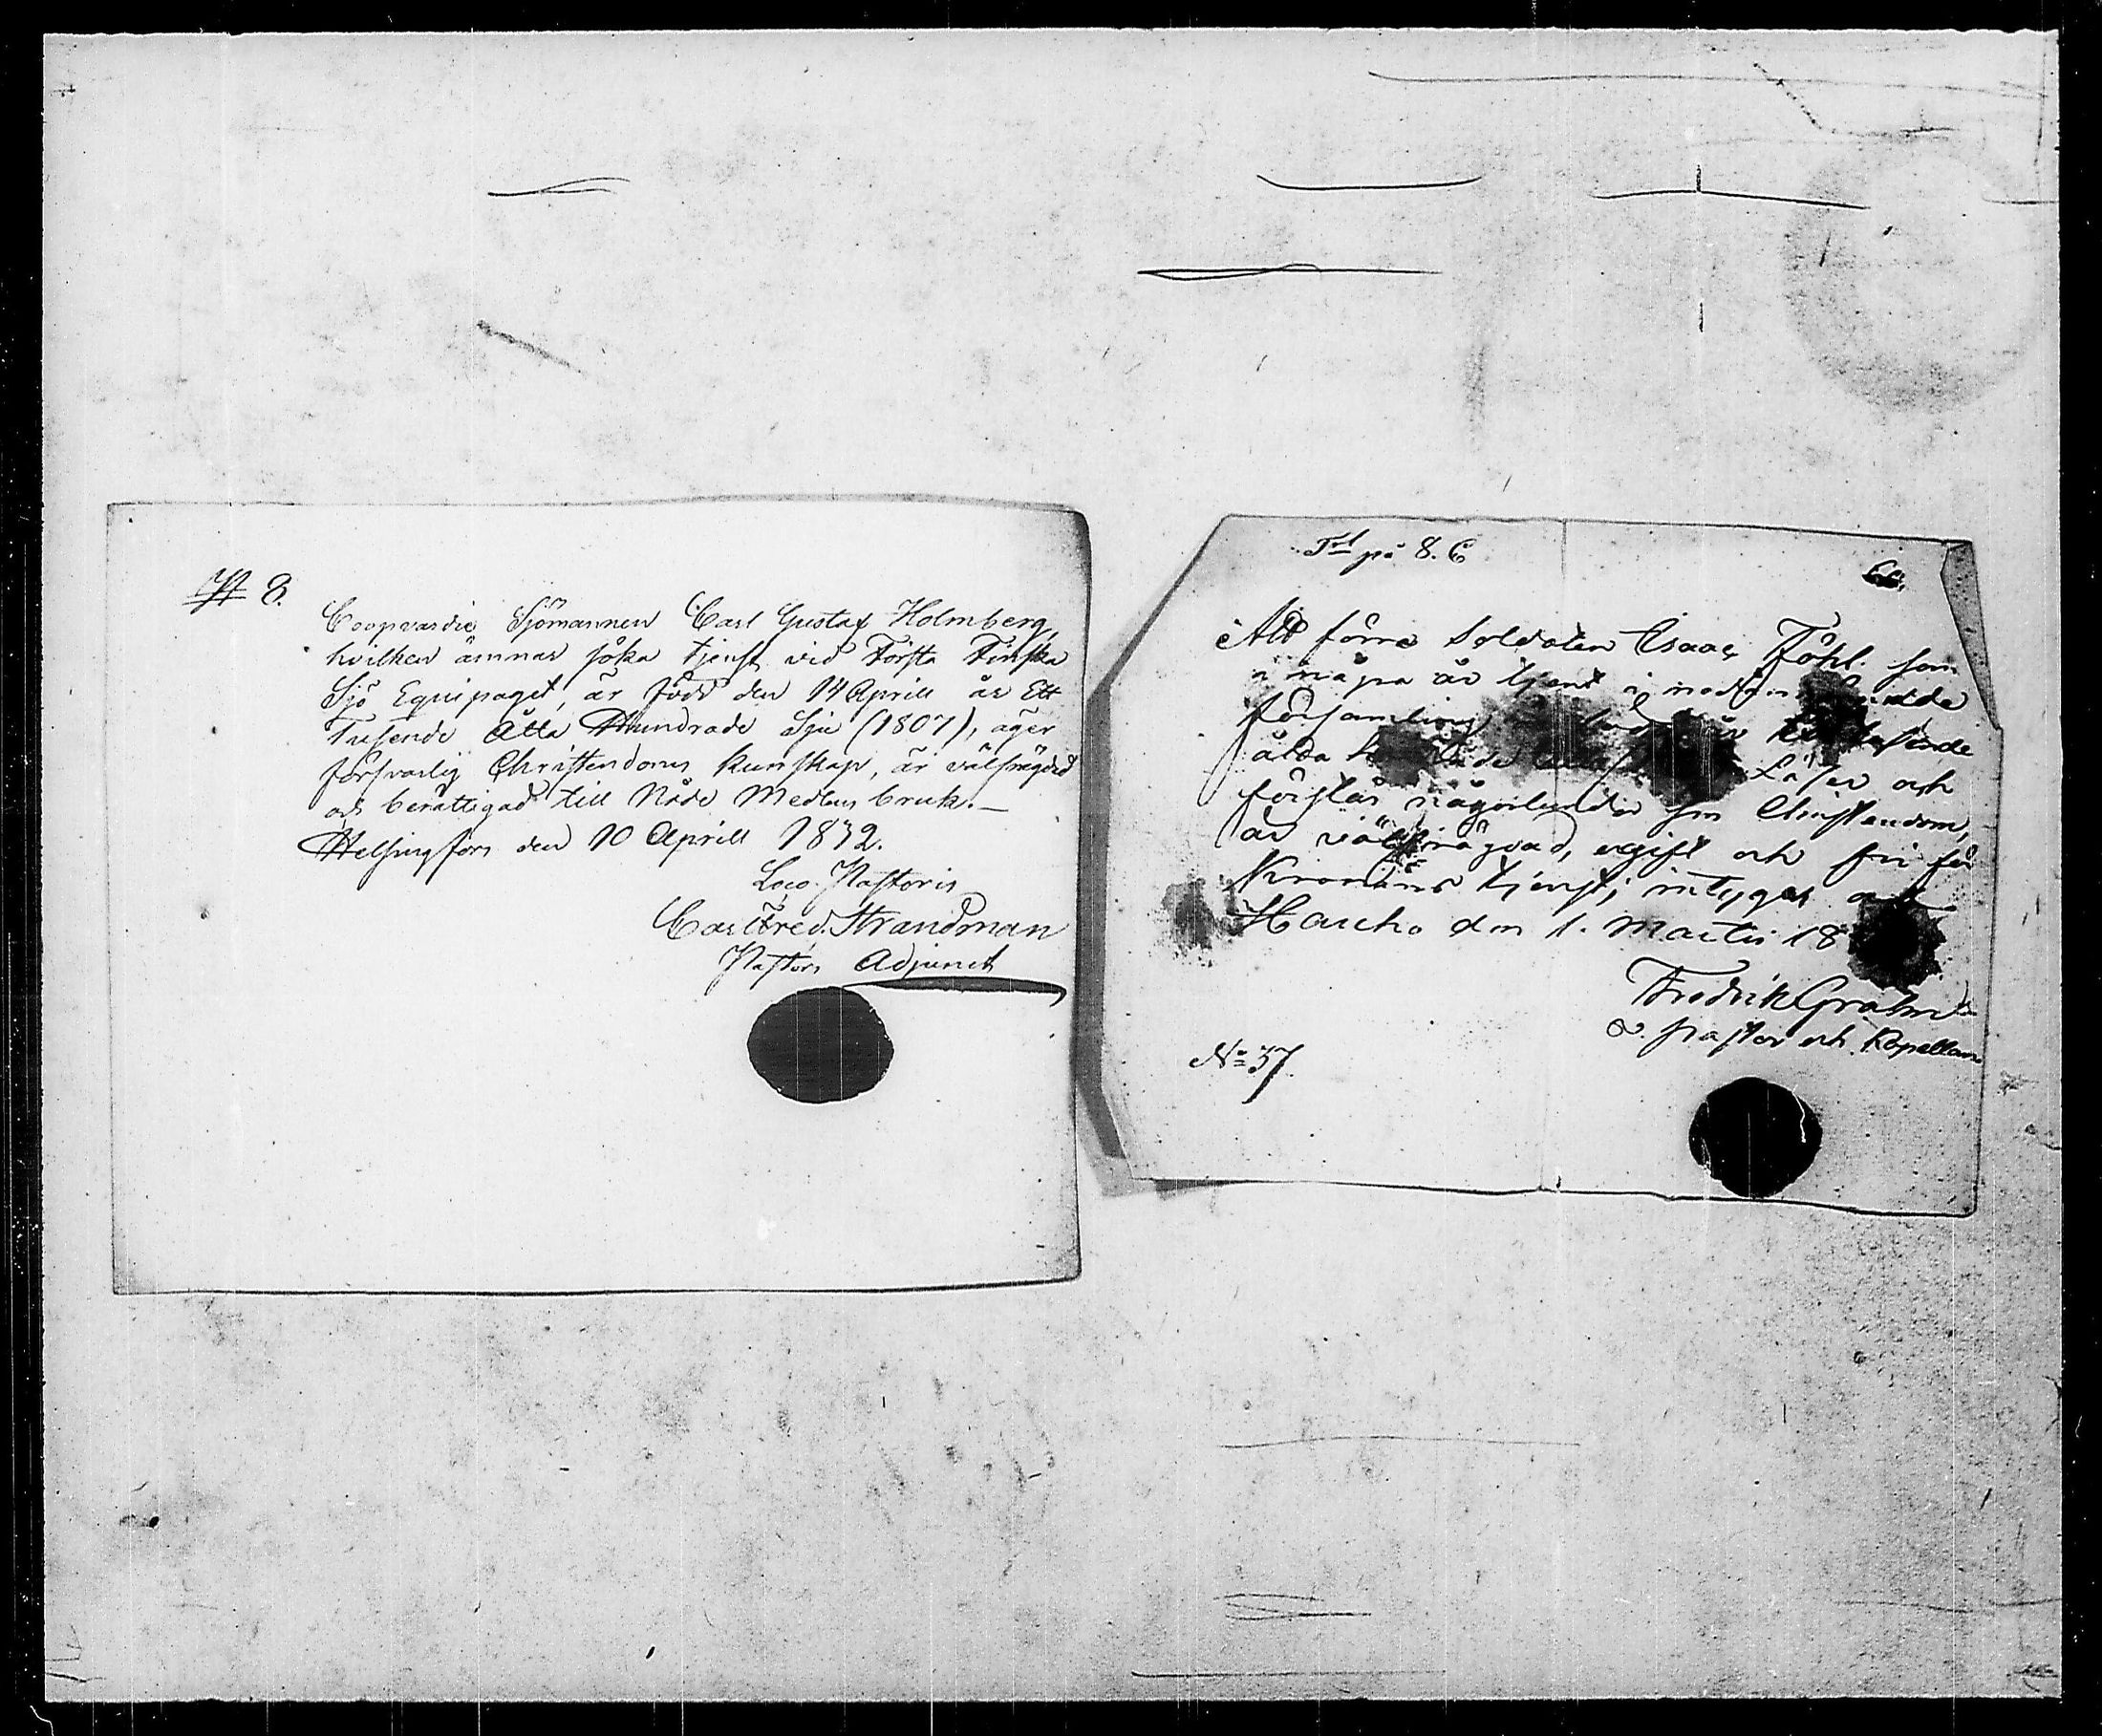 № 8.
Coopvardie Sjömannen Carl Gustaf Holmberg,
hvilken ämnar söka tjenst vid Första Finska
Sjö Equipaget, är född den 14 Aprill år Ett
Tusende Åtta Hundrade Sju (1807), äger
försvarlig Christendoms kunskap, är välfrägdad
och berättigad till Nåde Medlens bruk.—
Helsingfors den 10 Aprill 1832.
Loco Pastoris
Carl Fred. Strandman
Pastors Adjunct
på 8. C
66.
Att förre Soldaten Isaac som
några år tjent i
församling
ålda Läser och
förstår någorlunda sin Christendom,
är välfrägdad, ogift och fri för
Kronans tjenst; intygas
Hauho den 1. Martii 18
Fredrik Grahn
v. pastor och Kapellan
No 37.